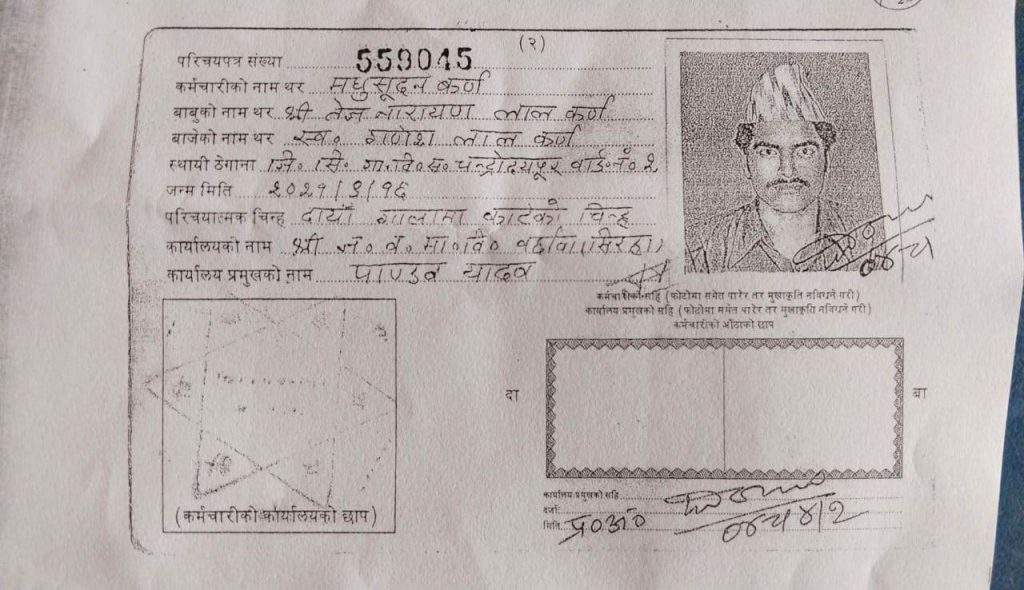 (२)
परिचयपत्र संख्या 559045
कर्मचारीको नाम थर मधुसूदन कर्ण
बाबुको नाम थर श्री तेज नारायण लाल कर्ण
बाजेको नाम थर स्व० गणेश लाल कर्ण
स्थायी ठेगाना जि० सि० गा.वि०स० चन्द्रोदयपूर वार्ड नं० २
जन्म मिति २०२१/३/१६
परिचयात्मक चिन्ह दायाँ गालामा काटेको चिन्ह
कार्यालयको नाम श्री ने० मा० वि० (सिरहा)
कार्यालय प्रमुखको नाम पाण्डव यादव
कर्मचारीको सहि (फोटोमा समेत पारेर तर मुखाकृति नबिग्रने गरी)
कार्यालय प्रमुखको सहि (फोटोमा समेत पारेर तर मुखाकृति नबिग्रने गरी)
कर्मचारीको औंठाको छाप
दा
बा
(कर्मचारीको कार्यालयको छाप)
कार्यालय प्रमुखको सहि
दर्जा
मिति प्र०अ०